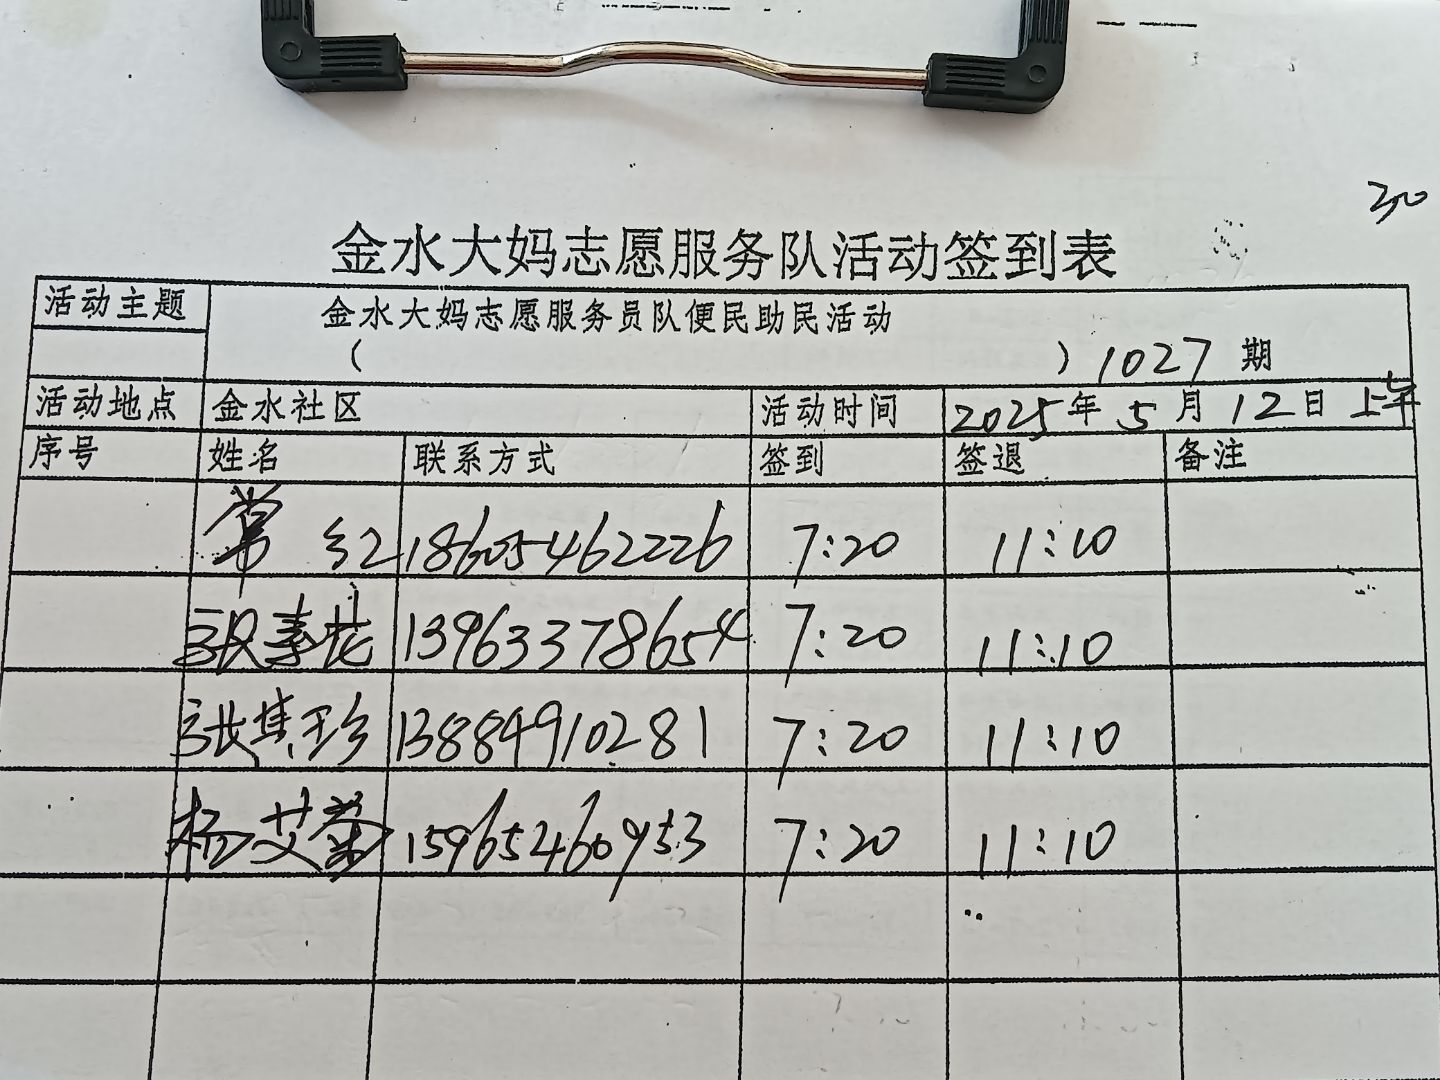 30
金水大妈志愿服务队活动签到表
活动主题 金水大妈志愿服务员队便民助民活动
( ) 1027 期
活动地点 金水社区 活动时间 2025年 5 月 12 日 上午
序号 姓名 联系方式 签到 签退 备注
常 红 18605462226 7:20 11:10
张素花 13963378654 7:20 11:10
张其珍 13884910281 7:20 11:10
杨艾荣 15965460953 7:20 11:10